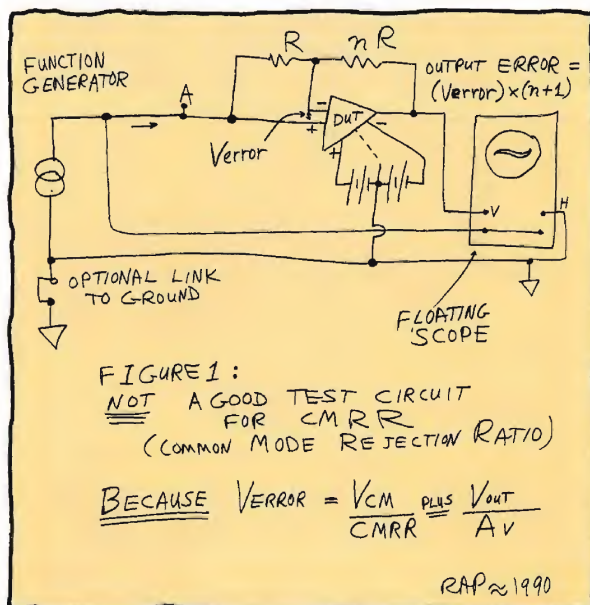 R
nR
FUNCTION
GENERATOR
OUTPUT ERROR =
(Verror)×(n+1)
A
-
+
DUT
-
+
Verror
V
H
OPTIONAL LINK
TO GROUND
FLOATING
SCOPE
FIGURE 1:
NOT A GOOD TEST CIRCUIT
FOR CMRR
(COMMON MODE REJECTION RATIO)
BECAUSE VERROR = VCM/CMRR PLUS VOUT/AV
RAP≈1990